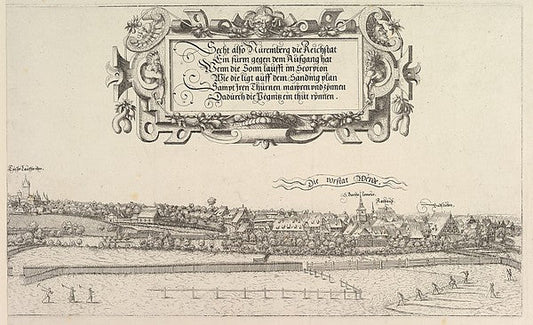 Secht also Nüremberg die Reichstat
Ein fürm gegen dem Aufgang hat
Wenn die Sonn laufft im Scorpion
Wie die ligt auff dem Sanding plan
Sampt jren Thürnen mawren vnd zinnen
Dadurch die Pegnitz ein thůt rÿnnen.
Die vorstat Werde.